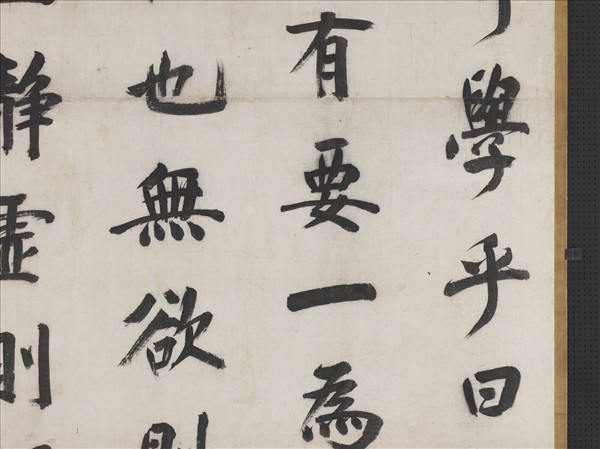 學乎曰
有要一為
也無欲則
靜虛則